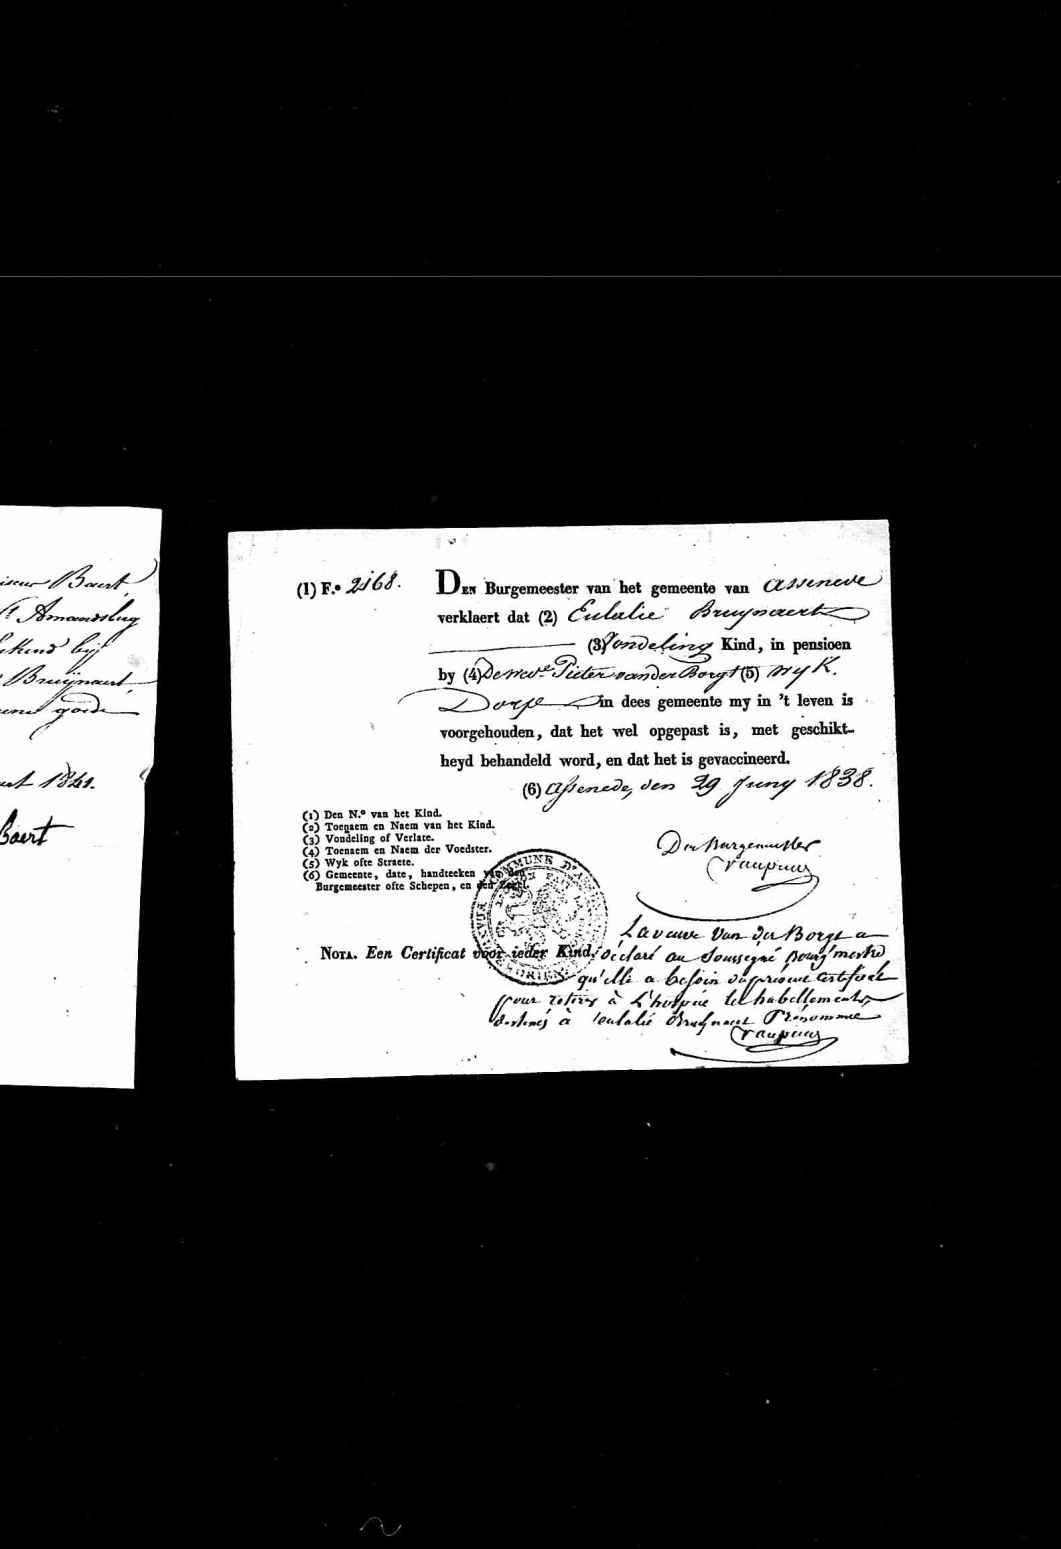 Baert
St Amandsbug
bij
Bruijnaert
goede
1841.
Baert
(1) F.º 2168.
DEN Burgemeester van het gemeente van Assenede
verklaert dat (2) Eulalie Bruynaert
(3) Vondeling Kind, in pensioen
by (4) De wwe Pieter van der Borgt (5) wyk.
Dorp in dees gemeente my in 't leven is
voorgehouden, dat het wel opgepast is, met geschikt-
heyd behandeld word, en dat het is gevaccineerd.
(6) Assenede, den 29 Juny 1838.
(1) Den N.º van het Kind.
(2) Toenaem en Naem van het Kind.
(3) Vondeling of Verlate.
(4) Toenaem en Naem der Voedster.
(5) Wyk ofte Straete.
(6) Gemeente, date, handteeken van den
Burgemeester ofte Schepen, en den Zegel.
Den Burgemeester
COMMUNE D'
NOTA. Een Certificat voor ieder Kind.
La veuve Van der Borgt a
déclaré au Soussigné bourgmestre
qu'elle a besoin du présent certificat
pour retirer à L'hospice les habillements
destinés à Eulalie Bruynaert Prénommée